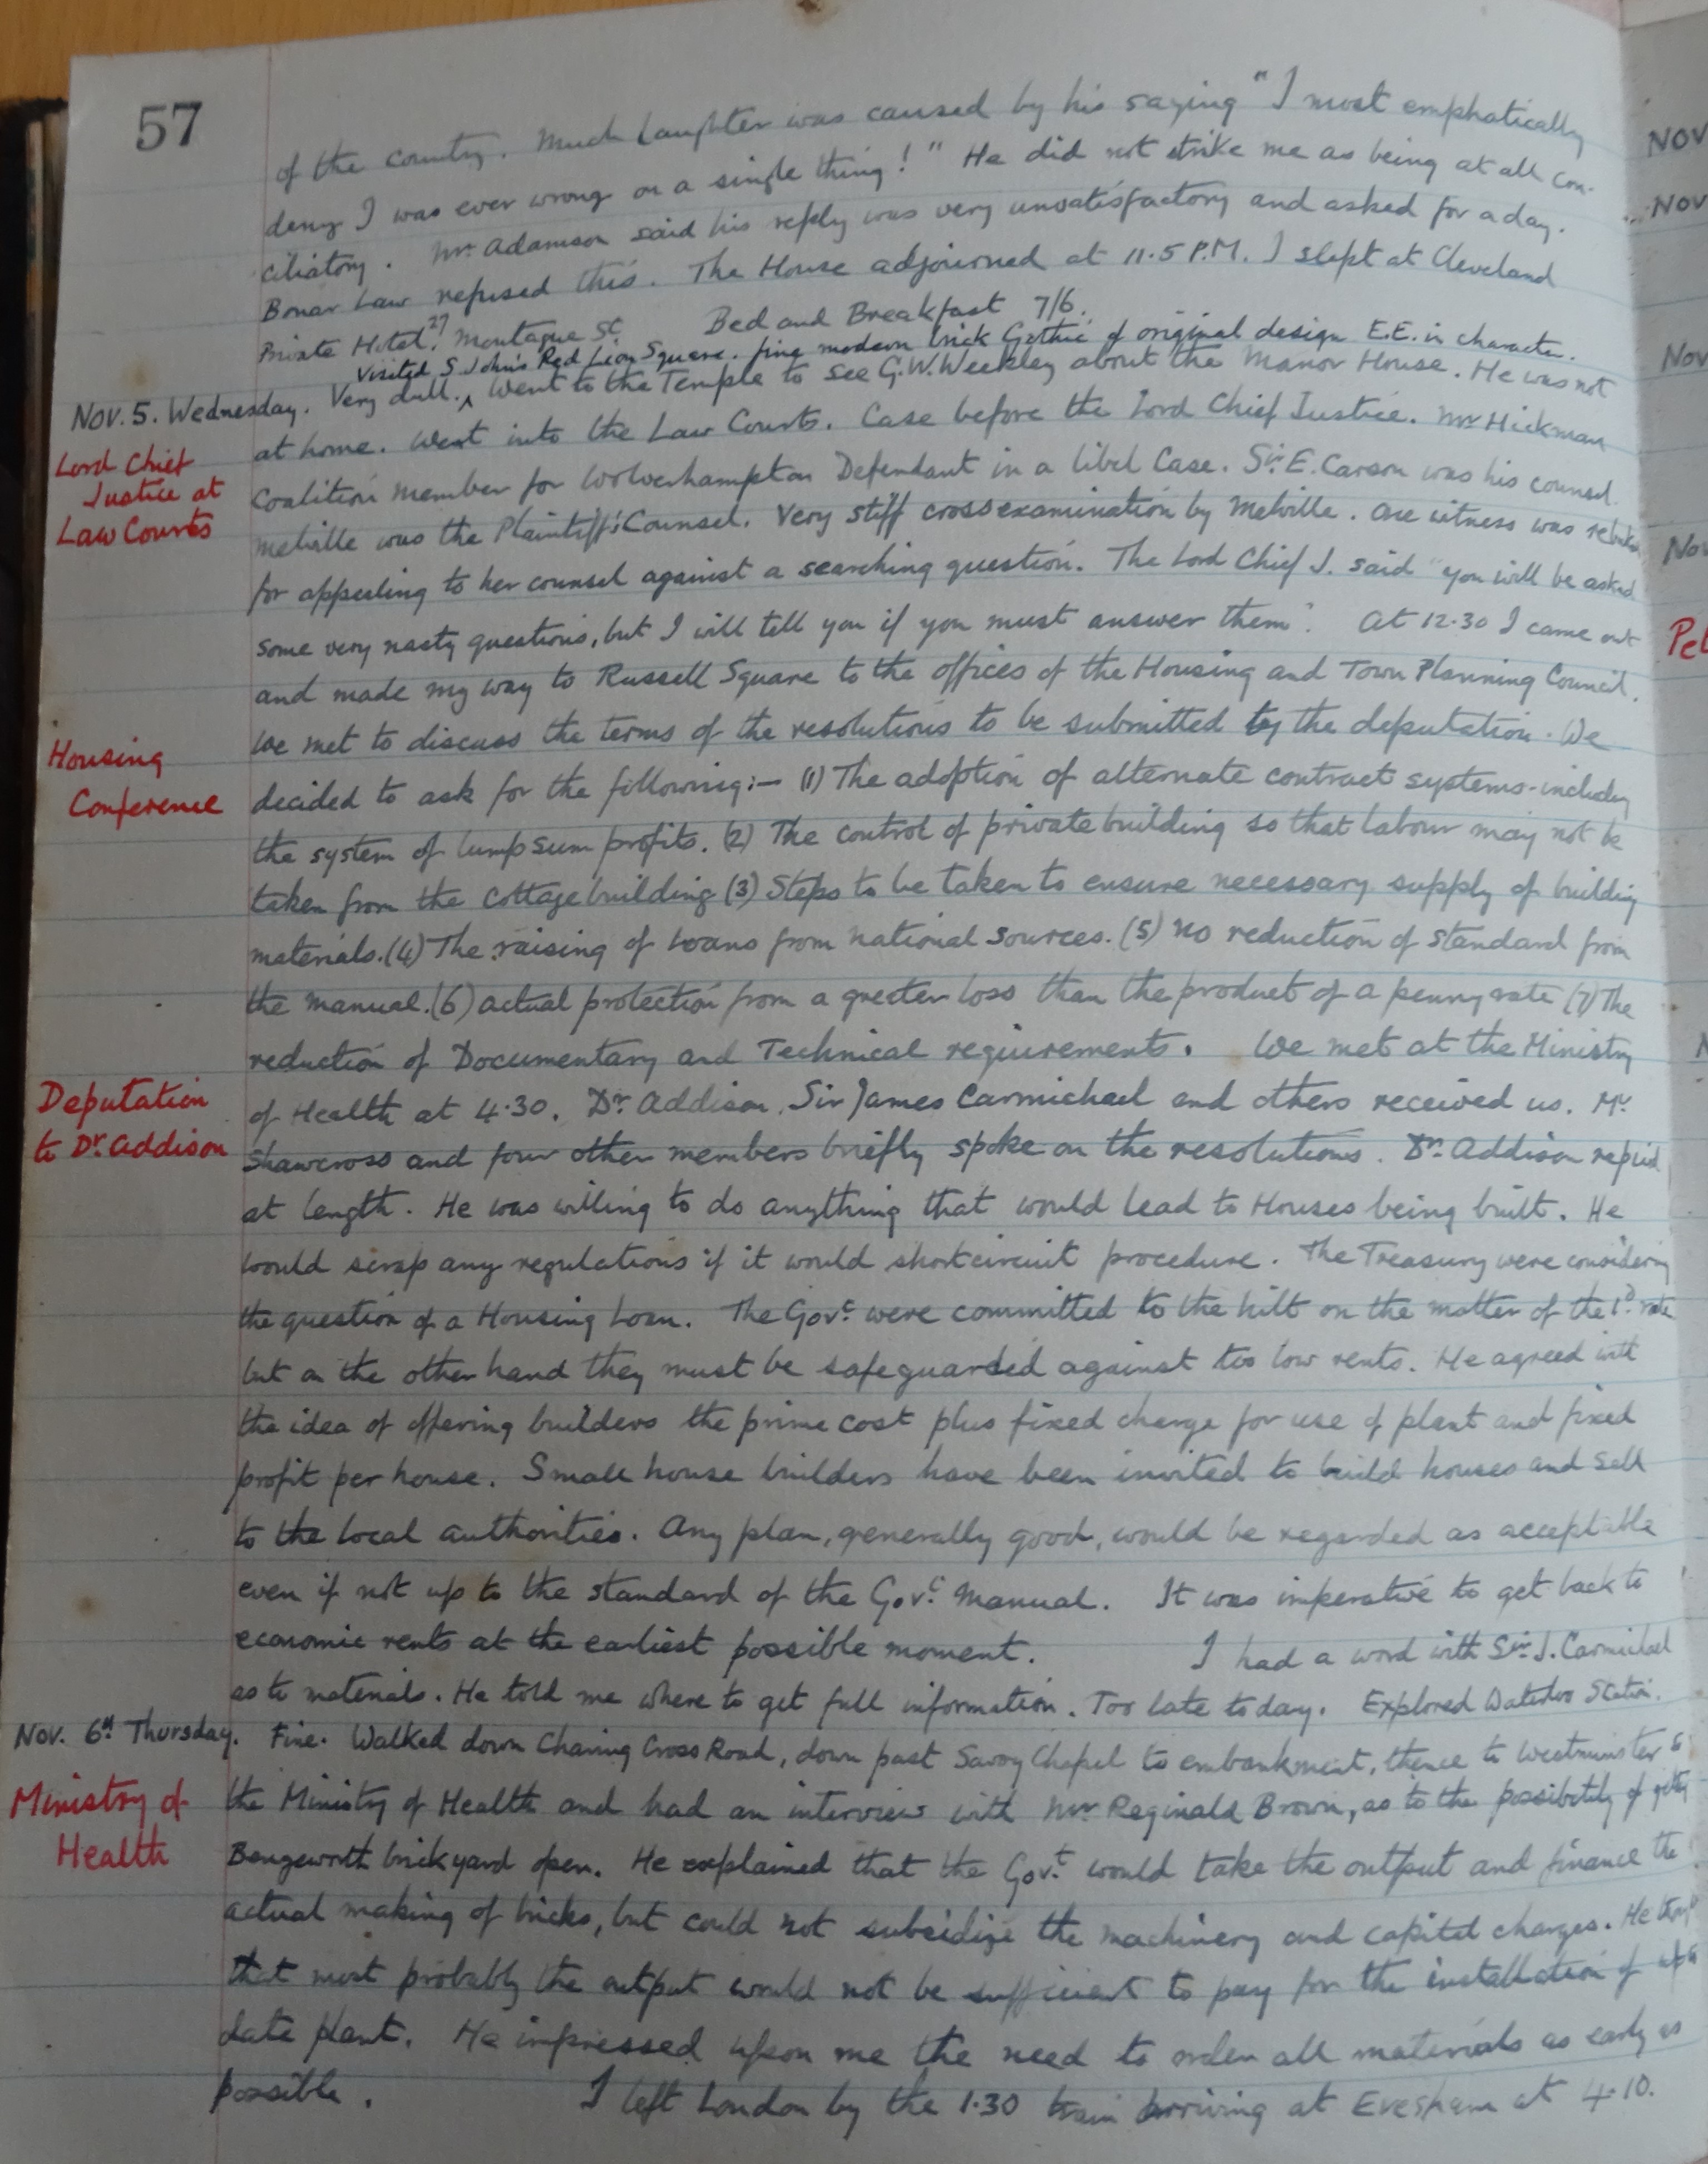 57
of the country. Much laughter was caused by his saying "I most emphatically
deny I was ever wrong on a single thing!" He did not strike me as being at all con-
ciliatory. Mr Adamson said his reply was very unsatisfactory and asked for a day.
Bonar Law refused this. The House adjourned at 11.5 P.M. I slept at Cleveland
Private Hotel, 27 Montague St. Bed and Breakfast 7/6.
Visited S. John's Red Lion Square. fine modern brick Gothic of original design E.E. in character.
Nov. 5. Wednesday. Very dull. ^ Went to the Temple to see G.W. Weekley about the Manor House. He was not
at home. Went into the Law Courts. Case before the Lord Chief Justice. Mr Hickman
Lord Chief
Justice at
Law Courts
Coalition member for Wolverhampton Defendant in a libel Case. Sir E. Carson was his counsel.
Melville was the Plaintiff's Counsel. Very stiff crossexamination by Melville. One witness was rebuked
for appealing to her counsel against a searching question. The Lord Chief J. said "you will be asked
some very nasty questions, but I will tell you if you must answer them". At 12.30 I came out
and made my way to Russell Square to the offices of the Housing and Town Planning Council.
Housing
Conference
We met to discuss the terms of the resolutions to be submitted by the deputation. We
decided to ask for the following:- (1) The adoption of alternate contract systems-including
the system of lump sum profits. (2) The control of private building so that labour may not be
taken from the cottage building (3) Steps to be taken to ensure necessary supply of building
materials. (4) The raising of loans from national sources. (5) No reduction of standard from
the manual. (6) Actual protection from a greater loss than the product of a penny rate (7) The
reduction of Documentary and Technical requirements. We met at the Ministry
Deputation
to Dr. Addison
of Health at 4.30. Dr. Addison, Sir James Carmichael and others received us. Mr
Shawcross and four other members briefly spoke on the resolutions. Dr. Addison replied
at length. He was willing to do anything that would lead to Houses being built. He
would scrap any regulations if it would shortcircuit procedure. The Treasury were considering
the question of a Housing Loan. The Govt. were committed to the hilt on the matter of the 1d. rate
but on the other hand they must be safeguarded against too low rents. He agreed with
the idea of offering builders the prime cost plus fixed charge for use of plant and fixed
profit per house. Small house builders have been invited to build houses and sell
to the local authorities. Any plan, generally good, would be regarded as acceptable
even if not up to the standard of the Govt. Manual. It was imperative to get back to
economic rents at the earliest possible moment. I had a word with Sir J. Carmichael
as to materials. He told me where to get full information. Too late today. Explored Waterloo Station.
Nov. 6th Thursday. Fine. Walked down Charing Cross Road, down past Savoy Chapel to embankment, thence to Westminster to
Ministry of
Health
the Ministry of Health and had an interview with Mr Reginald Brown, as to the possibility of getting
Bengeworth brickyard open. He explained that the Govt. would take the output and finance the
actual making of bricks, but could not subsidize the machinery and capital charges. He thought
that most probably the output would not be sufficient to pay for the installation of up to
date plant. He impressed upon me the need to order all materials as early as
possible. I left London by the 1.30 train arriving at Evesham at 4.10.
Nov
Nov
Nov
Nov
Pet
N